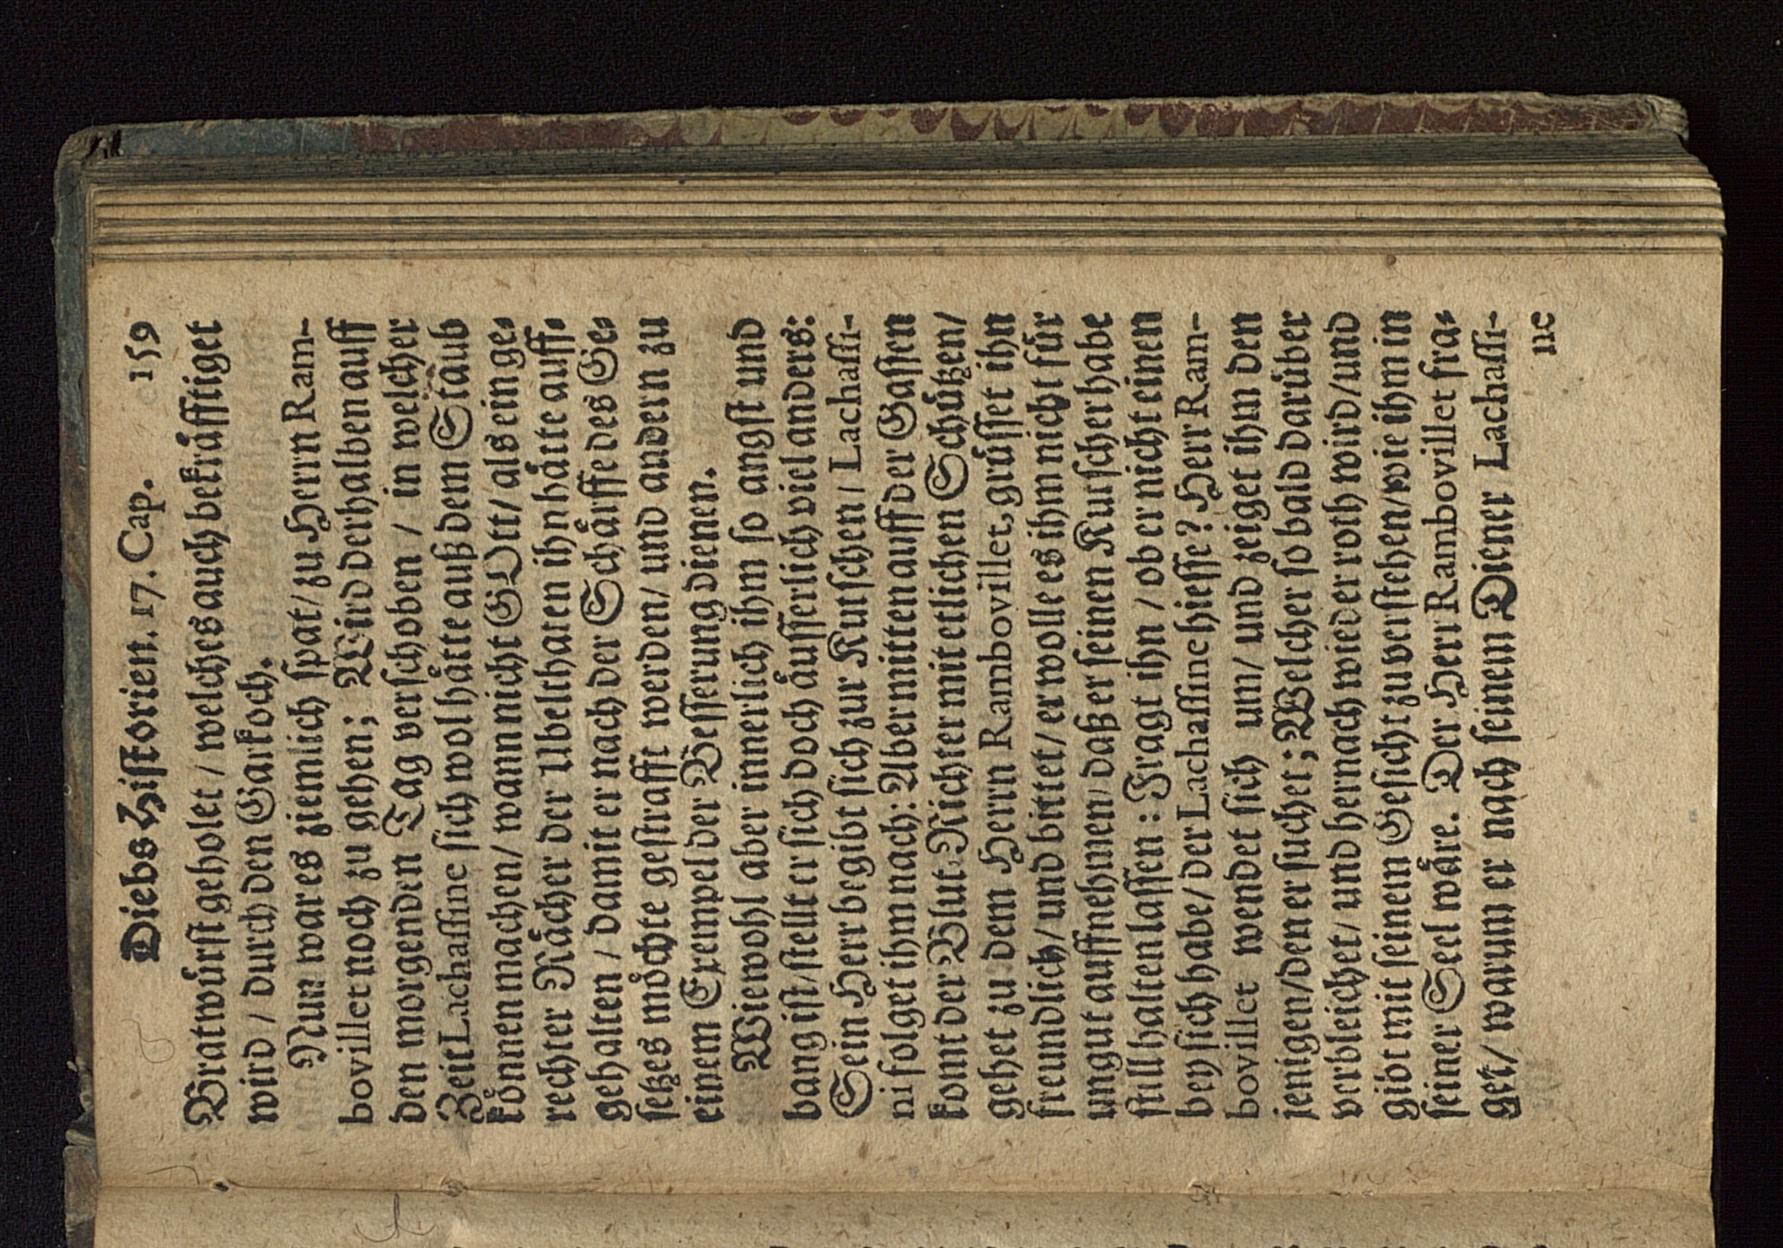 Diebs Historien. 17. Cap. 159
Bratwürst geholet / welches auch bekräfftiget
wird / durch den Garkoch.
Nun war es ziemlich spat / zu Herrn Ram-
bovillet noch zu gehen; Wird derhalben auff
den morgenden Tag verschoben / in welcher
Zeit Lachassine sich wol hätte auß dem Staub
können machen / wann nicht GOtt / als ein ge-
rechter Rächer der Ubelthaten ihn hätte auff-
gehalten / damit er nach der Schärffe des Ge-
setzes möchte gestrafft werden / und andern zu
einem Exempel der Besserung dienen.
Wiewohl aber innerlich ihm so angst und
bang ist / stellt er sich doch äusserlich viel anders:
Sein Herr begibt sich zur Kutschen / Lachassi-
ni folget ihm nach: Aber mitten auff der Gassen
komt der Blut-Richter mit etlichen Schützen /
gehet zu dem Herrn Rambovillet, grüsset ihn
freundlich / und bittet / er wolle es ihm nicht für
ungut auffnehmen / daß er seinen Kutscher habe
still halten lassen: Fragt ihn / ob er nicht einen
bey sich habe / der Lachassine hiesse? Herr Ram-
bovillet wendet sich um / und zeiget ihm den
jenigen / den er suchet; Welcher so bald darüber
verbleichet / und hernach wieder roth wird / und
gibt mit seinem Gesicht zu verstehen / wie ihm in
seiner Seel wäre. Der Herr Rambovillet fra-
get / warum er nach seinem Diener Lachassi-
ne